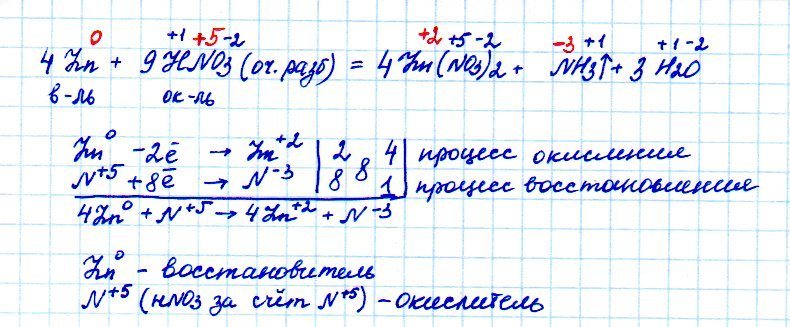 0 +1 +5 -2 +2 +5 -2 -3 +1 +1 -2
4 Zn + 9 HNO3 (оч. разб) = 4 Zn(NO3)2 + NH3↑ + 3 H2O
в-ль ок-ль
Zn⁰ -2ē → Zn⁺² | 2 8 4 | процесс окисления
N⁺⁵ +8ē → N⁻³ | 8 1 | процесс восстановления
4Zn⁰ + N⁺⁵ → 4Zn⁺² + N⁻³
Zn⁰ - восстановитель
N⁺⁵ (HNO3 за счёт N⁺⁵) - окислитель